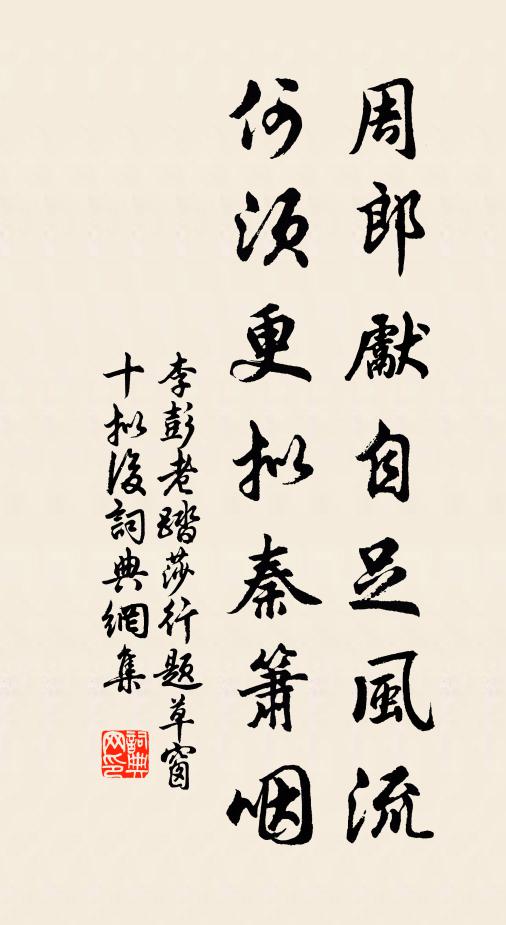 周郎獻自足風流
何須更拟秦簫咽
李彭老踏莎行題草窗
十拟後詞典網集
詞典
网印